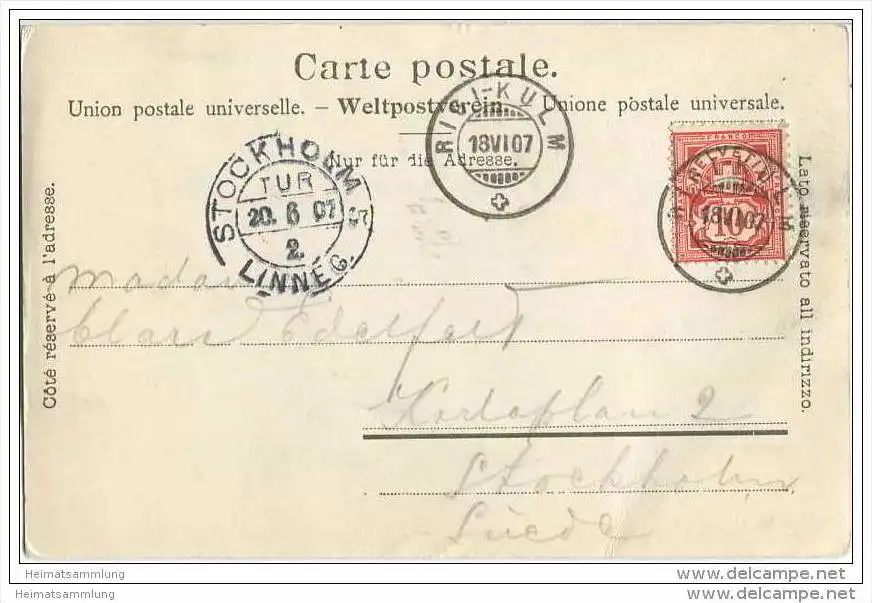 Carte postale.
Union postale universelle. – Weltpostverein. – Unione postale universale.
Nur für die Adresse.
RIGI-KULM
18 VI 07
STOCKHOLM
TUR
20. 6 07
2.
LINNEG.
FRANCO
HELVETIA
10
18 VI 07
Côté réservé à l'adresse.
Lato riservato all indirizzo.
Madame
Clara Edelfart
2
Stockholm
Suède
Heimatsammlung
Heimatsammlung
www.delcampe.net
www.delcampe.net